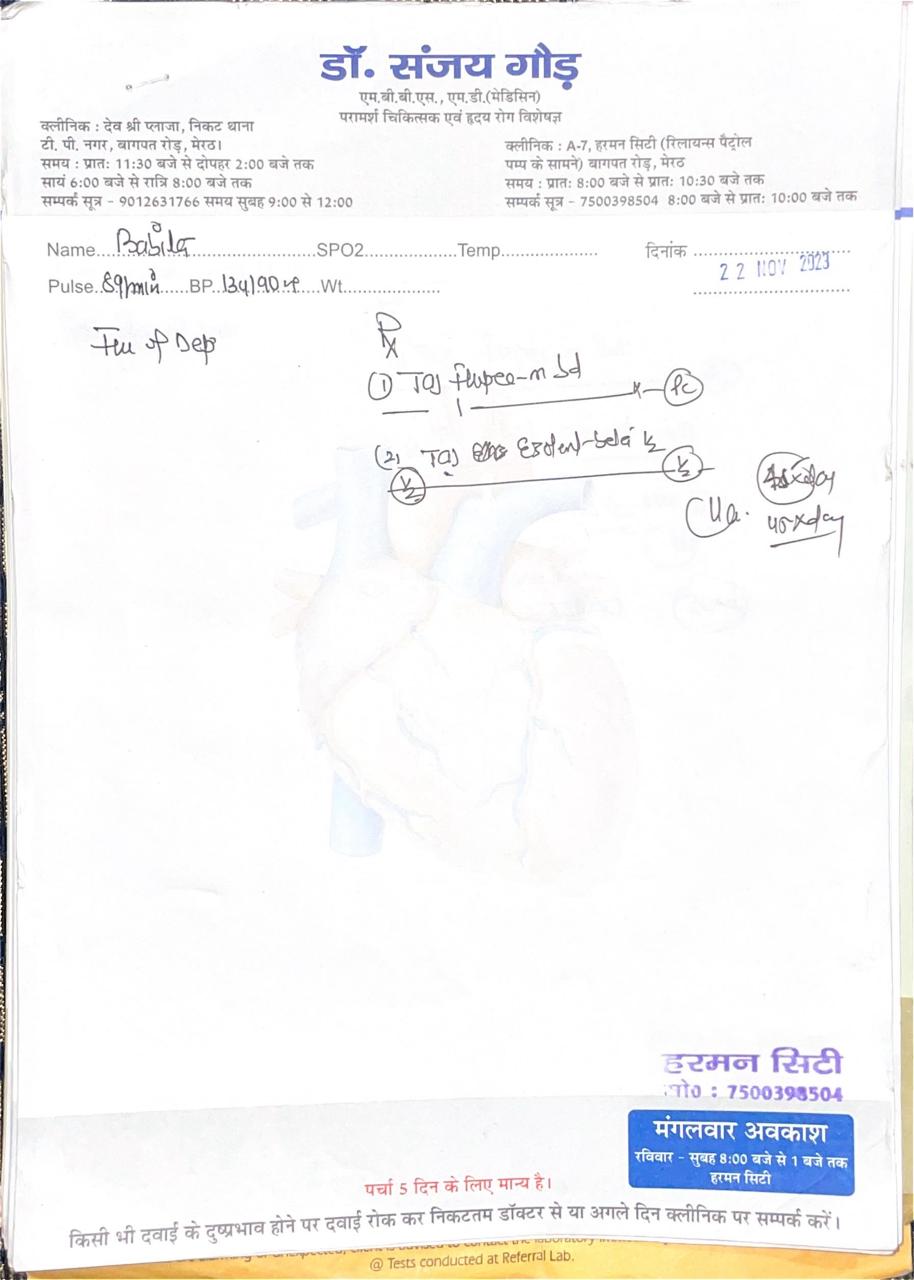 डॉ. संजय गौड़
एम.बी.बी.एस., एम.डी.(मेडिसिन)
परामर्श चिकित्सक एवं हृदय रोग विशेषज्ञ
क्लीनिक : देव श्री प्लाजा, निकट थाना
टी. पी. नगर, बागपत रोड़, मेरठ।
समय : प्रातः 11:30 बजे से दोपहर 2:00 बजे तक
सायं 6:00 बजे से रात्रि 8:00 बजे तक
सम्पर्क सूत्र - 9012631766 समय सुबह 9:00 से 12:00
क्लीनिक : A-7, हरमन सिटी (रिलायन्स पैट्रोल
पम्प के सामने) बागपत रोड़, मेरठ
समय : प्रातः 8:00 बजे से प्रातः 10:30 बजे तक
सम्पर्क सूत्र - 7500398504 8:00 बजे से प्रातः 10:00 बजे तक
Name Babita SPO2 Temp. दिनांक
22 NOV 2023
Pulse 89/min BP 134/90 Wt.
of Dep
Rx
(1)
(2)
45xday
हरमन सिटी
मो० : 7500398504
मंगलवार अवकाश
रविवार - सुबह 8:00 बजे से 1 बजे तक
हरमन सिटी
पर्चा 5 दिन के लिए मान्य है।
किसी भी दवाई के दुष्प्रभाव होने पर दवाई रोक कर निकटतम डॉक्टर से या अगले दिन क्लीनिक पर सम्पर्क करें।
@ Tests conducted at Referral Lab.